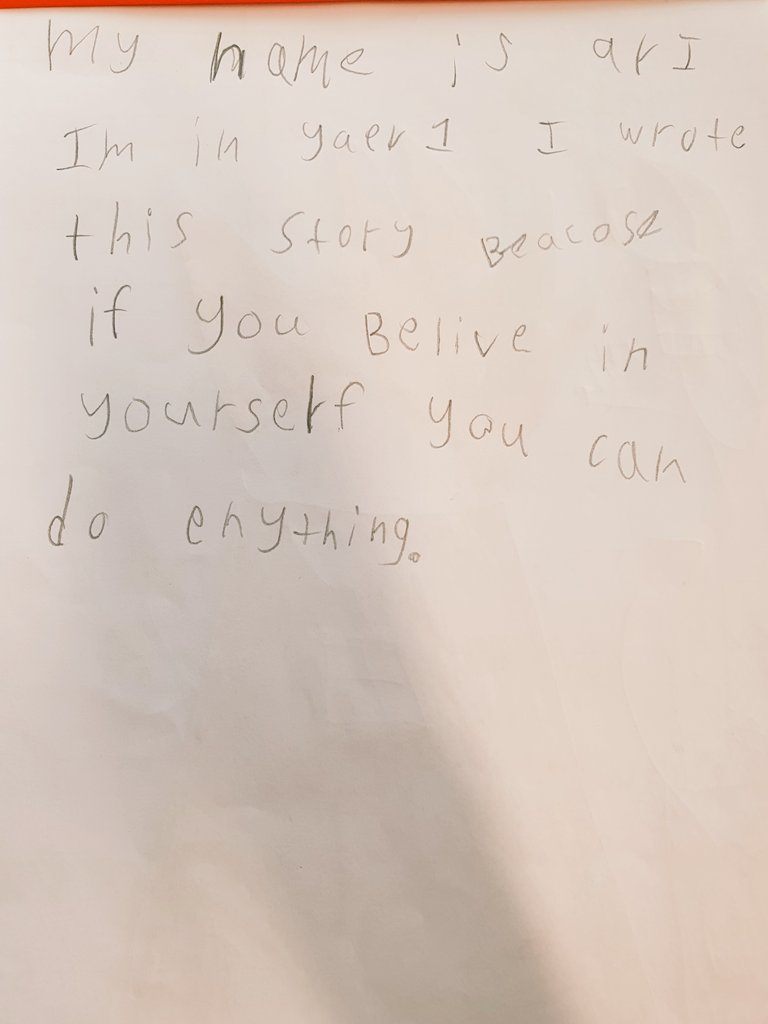 My name is arI
Im in yaer 1 I wrote
this story Beacose
if you Belive in
yourself you can
do enything.